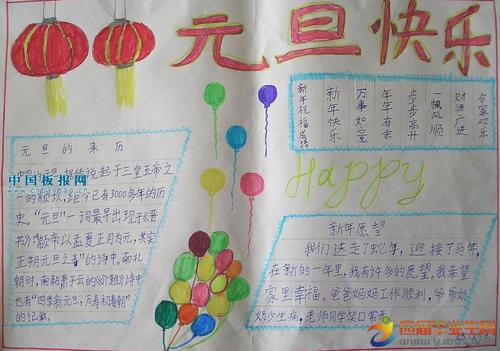 元旦快乐
新年祝福成语
新年快乐
万事如意
年年有余
步步高升
一帆风顺
财源广进
合家欢乐
元旦的来历
传说起于三皇五帝之
一的颛顼,距今已有3000多年的历
史。"元旦"一词最早出现于《晋
书》:"颛帝以孟夏正月为元,其实
正朔元旦之春"的诗中。南北
朝时,南朝萧子云的《介雅》诗中
也有"四季新元旦,万寿初春朝"
的记载。
中国板报网
Happy
新年愿望
我们送走了蛇年,迎接了马年,
在新的一年里,我有许多的愿望,我希望
家里幸福,爸爸妈妈工作顺利,爷爷奶
奶少生病,老师同学笑口常开
应届毕业生网